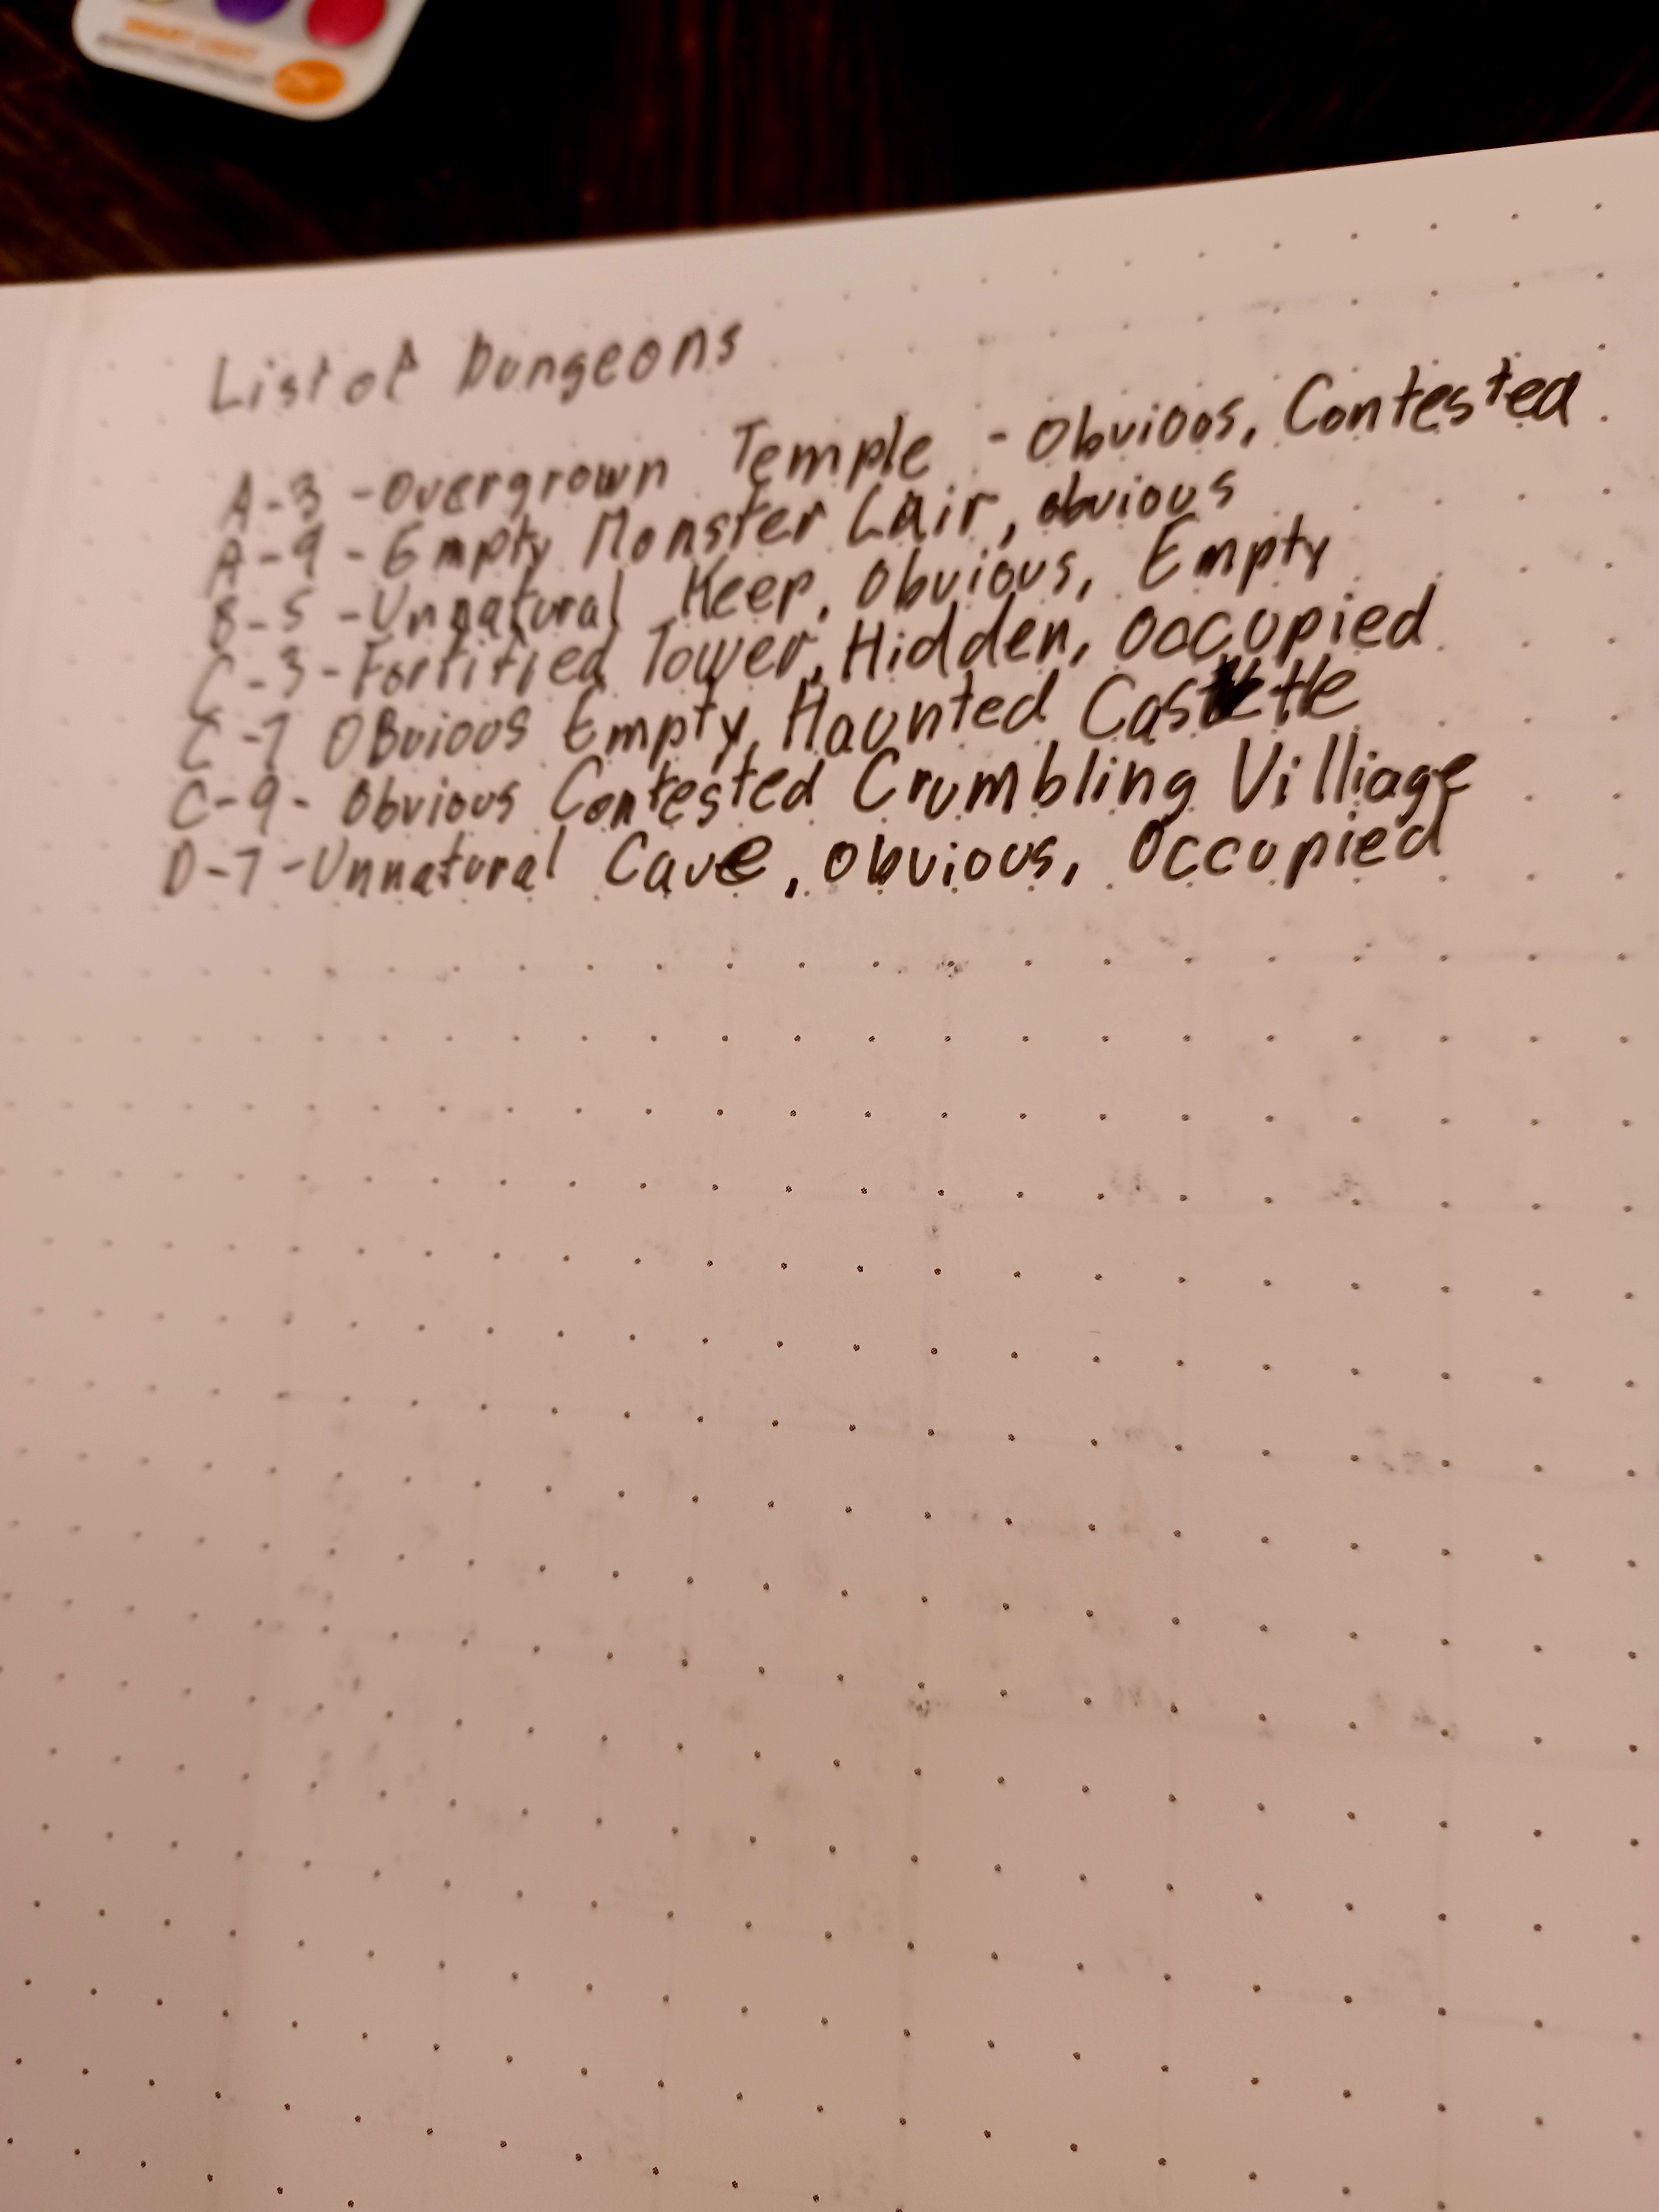 SMART LIGHT
REMOTE CONTROLLER
List of Dungeons
A-3 -Overgrown Temple - Obvious, Contested
A-9 - Empty Monster Lair, obvious
B-5 -Unnatural Keep, Obvious, Empty
C-3-Fortified Tower, Hidden, Occupied
C-7 OBvious Empty, Haunted Castle
C-9- Obvious Contested Crumbling Villiage
D-7-Unnatural Cave, Obvious, Occupied